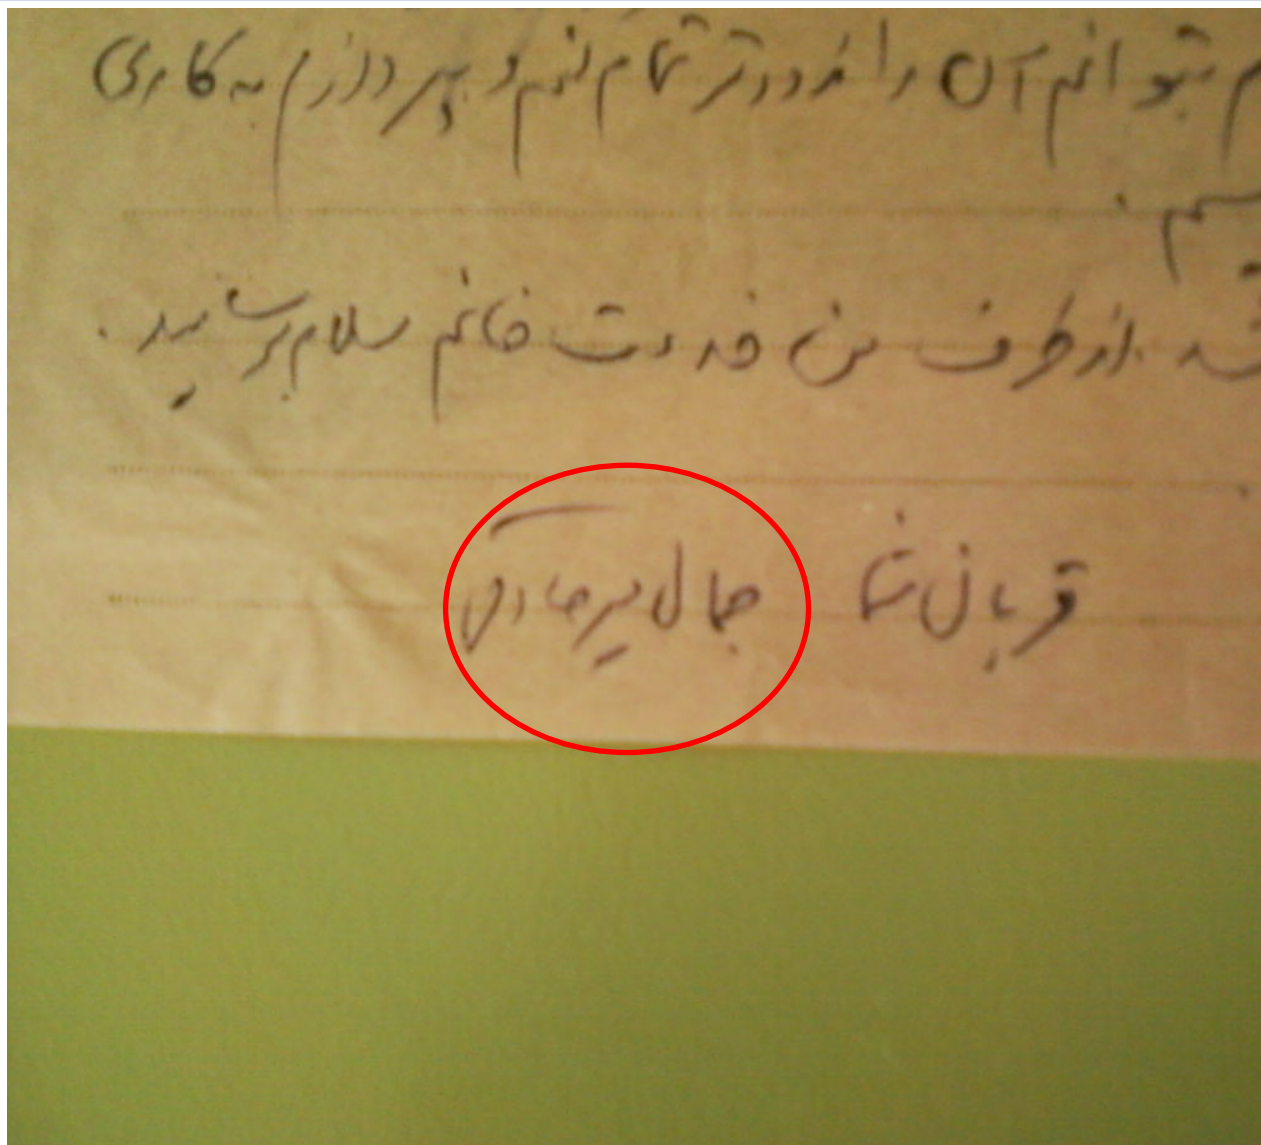 م بتوانم آن را زودتر تمام کنم و بپردازم به کاری
از طرف من خدمت خانم سلام برسانید.
قربان شما جمال میرصادقی